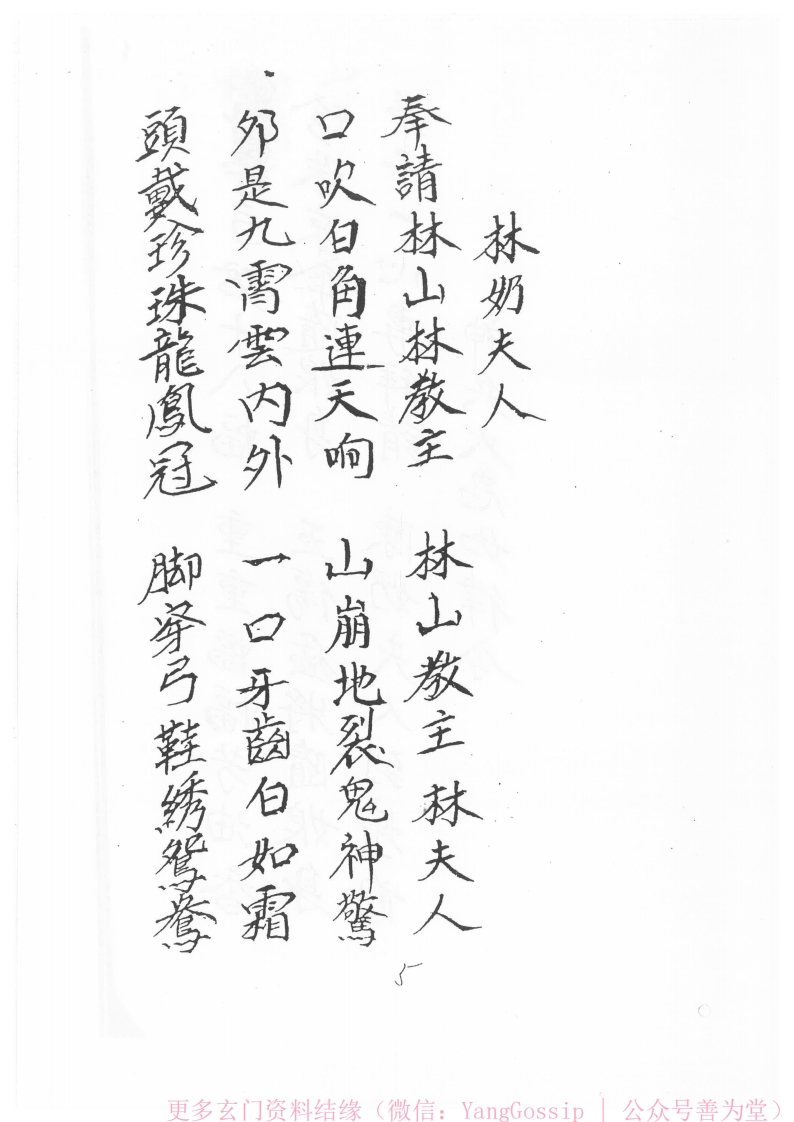 林奶夫人
奉請林山林教主 林山教主林夫人
口吹白角連天响 山崩地裂鬼神驚
邜是九霄雲内外 一口牙齒白如霜
頭戴珍珠龍鳳冠 脚穿弓鞋綉鴛鴦
5
更多玄门资料结缘（微信：YangGossip | 公众号善为堂）